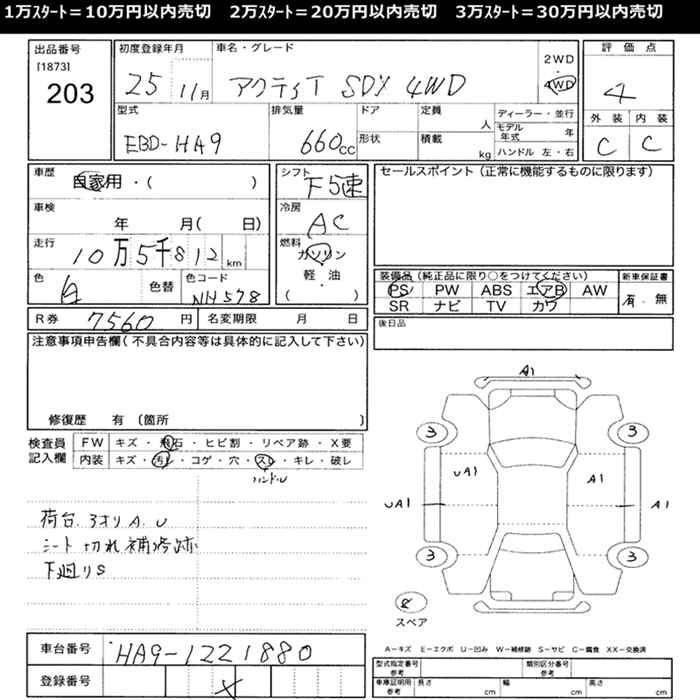 1万ｽﾀｰﾄ＝10万円以内売切 2万ｽﾀｰﾄ＝20万円以内売切 3万ｽﾀｰﾄ＝30万円以内売切
出品番号 初度登録年月 車名・グレード 評価点
[1873] 2WD
203 25 11月 アクティT SDX 4WD 4WD 4
型式 排気量 ドア 定員 ディーラー・並行 外装 内装
人 モデル年式 年
EBD-HA9 660cc 形状 積載 kg ハンドル 左・右 C C
車歴 シフト セールスポイント（正常に機能するものに限ります）
自家用・( ) 下5速
車検 冷房
年 月( 日) AC
走行 燃料
10万5千812km ガソリン
色 色替 色コード 軽・油 装備品（純正品に限り○をつけてください） 新車保証書
白 NH578 ( ) PS PW ABS エアB AW 有・無
SR ナビ TV カワ
R券 7560円 名変期限 月 日 後日品
注意事項申告欄（不具合内容等は具体的に記入して下さい）
A1
修復歴 有（箇所 )
3 3
検査員記入欄 FW キズ・飛石・ヒビ割・リペア跡・X要
内装 キズ・汚レ・コゲ・穴・スレ・キレ・破レ
ハンドル
UA1 A1
UA1 A1
荷台.3オリA.U
シート切れ補修跡
下廻りS
3 3
スペア
車台番号 HA9-1221880
A－キズ E－エクボ U－凹み W－補修跡 S－サビ C－腐食 XX－交換済
登録番号 型式指定番号参考 類別区分番号参考
車庫証明用参考 長さ cm 幅 cm 高さ cm